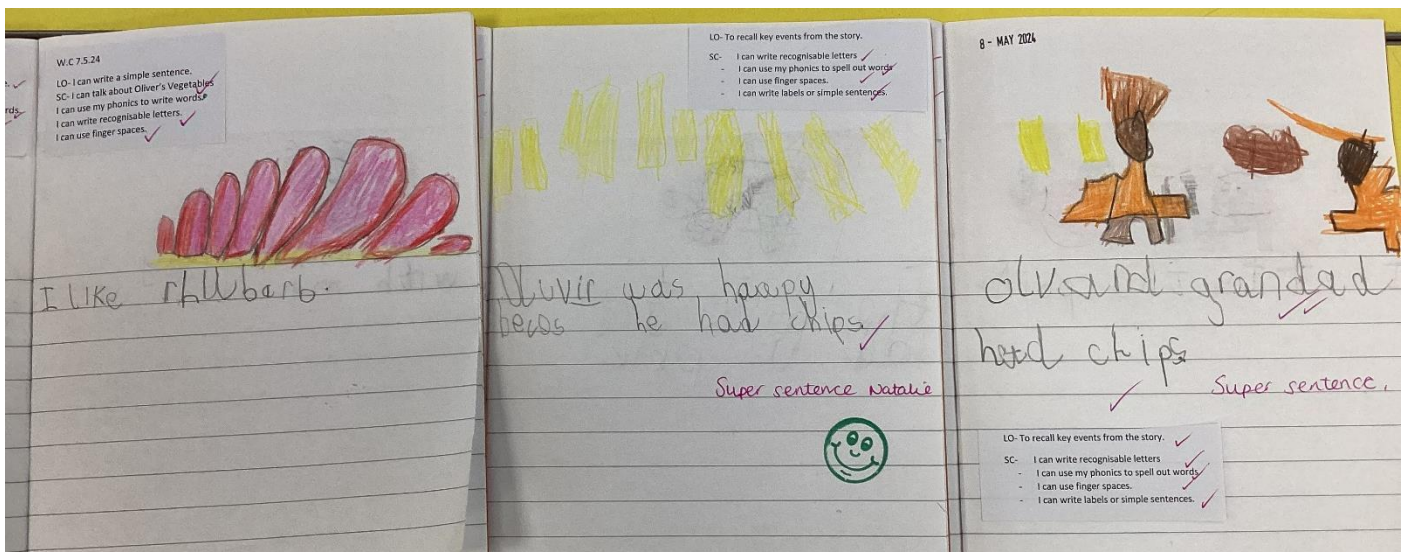 W.C 7.5.24
LO- I can write a simple sentence.
SC- I can talk about Oliver's Vegetables
I can use my phonics to write words.
I can write recognisable letters.
I can use finger spaces.
I LIKE rhubarb.
LO- To recall key events from the story.
SC- I can write recognisable letters
- I can use my phonics to spell out words
- I can use finger spaces.
- I can write labels or simple sentences.
Oluvir was haapy
becos he had chips
Super sentence Natalie
8 - MAY 2024
olv and grandad
had chips
Super sentence.
LO- To recall key events from the story.
SC- I can write recognisable letters
- I can use my phonics to spell out words
- I can use finger spaces.
- I can write labels or simple sentences.